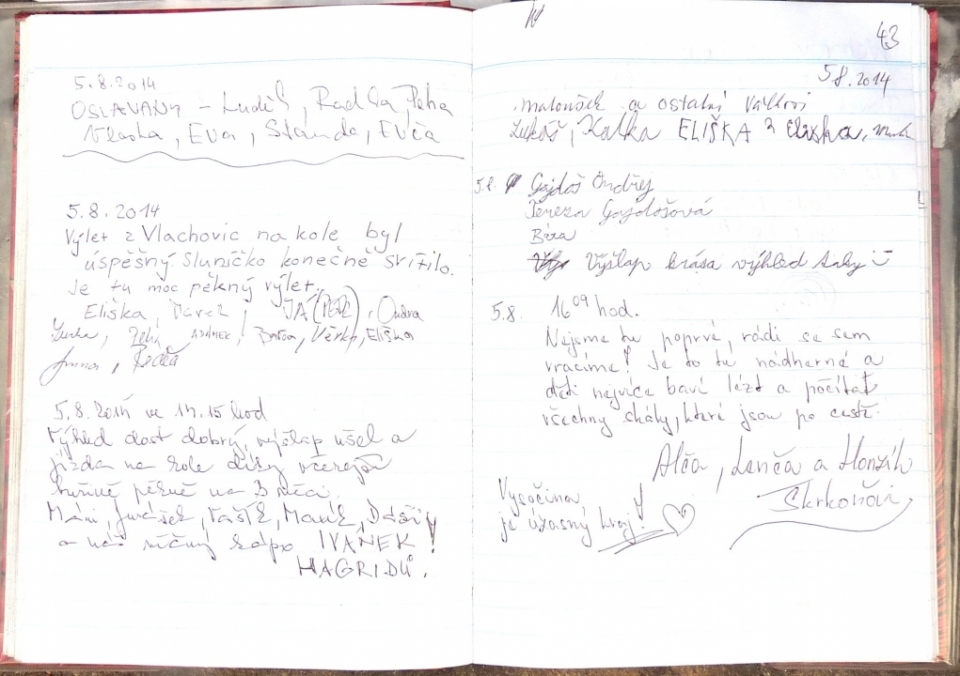 5.8.2014
OSLAVANY – Luděk, Radka, Péťa
Vlasta, Eva, Standa, Evča
5.8.2014
Výlet z Vlachovic na kole byl
úspěšný sluníčko konečně svítilo.
Je tu moc pěkný výlet.
Eliška, JÁ (PEPE), Ondra
Péťa, ADÁMEK, Bára, Věrka, Eliška
Radka
5.8.2014 ve 14.15 hod
Výhled dost dobrý, výšlap ušel a
jízda na kole díky včerejší
pěkně na
Máni, Jurášek, Vašík, Mařík,
a náš IVANEK!
HAGRIDŮ.
43
5.8.2014
Matoušek a ostatní
Lukáš, Katka ELIŠKA 2 Eliška,
5.8. Gajdoš Ondřej
Tereza Gajdošová
Bára
Výšlap krása výhled
5.8. 16 09 hod.
Nejsme tu poprvé, rádi se sem
vracíme! Je to tu nádherné a
děti nejvíce baví lézt a počítat
všechny skály, které jsou po cestě.
Alča, Lenča a Honzík
Škrkoňovi
Vysočina
je úžasný kraj!